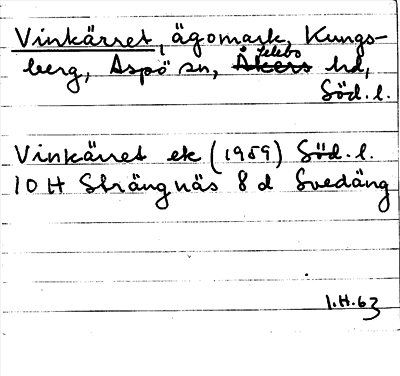 Vinkärret, ägomark, Kungs-
berg, Aspö sn, Åkers Selebo hd,
Söd. l.
Vinkärret ek (1959) Söd. l.
10 H Strängnäs 8 d Svedäng
I.H. 63